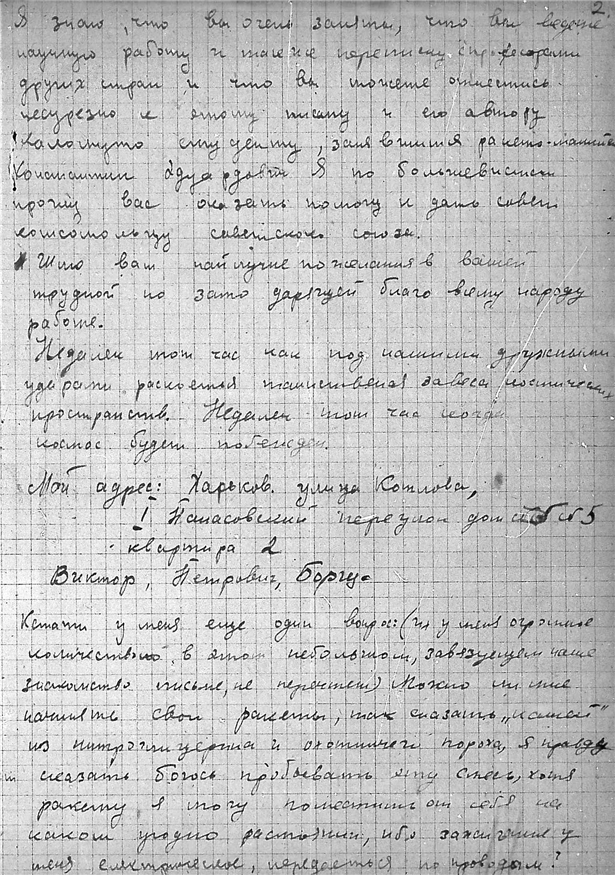 2
Я знаю, что вы очень заняты, что вы ведете
научную работу и также переписку с професорами
других стран и что вы можете отнестись
несурезно к этому письму и его автору
малолетнему студенту, занявшимся ракето-манией
Константин Эдуардович Я по большевистски
прошу вас оказать помощь и дать совет
комсомольцу советского союза.
Шлю вам найлучие пожелания в вашей
трудной но зато дарящей благо всему народу
работе.
Недалек тот час как под нашими дружными
ударами раскоеться таинственая завеса космических
пространств. Недалек тот час когда
космос будет побежден.
Мой адрес: Харьков. улица Котлова,
I Панасовский переулок дом 5
квартира 2
Виктор, Петрович, Боргу.
Кстати у меня еще один вопрос: (их у меня огромное
количество, в этом небольшом, завязуещем наше
знакомство письме, не перечтеш) Можно ли мне
начинять свои ракеты, так сказать „кашей"
из нитроглицерина и охотничего пороха, я правду
сказать боюсь пробывать эту смесь, хотя
ракету я могу поместить от себя на
каком угодно растоянии, ибо зажигание у
меня електрическое, передаеться по проводам?